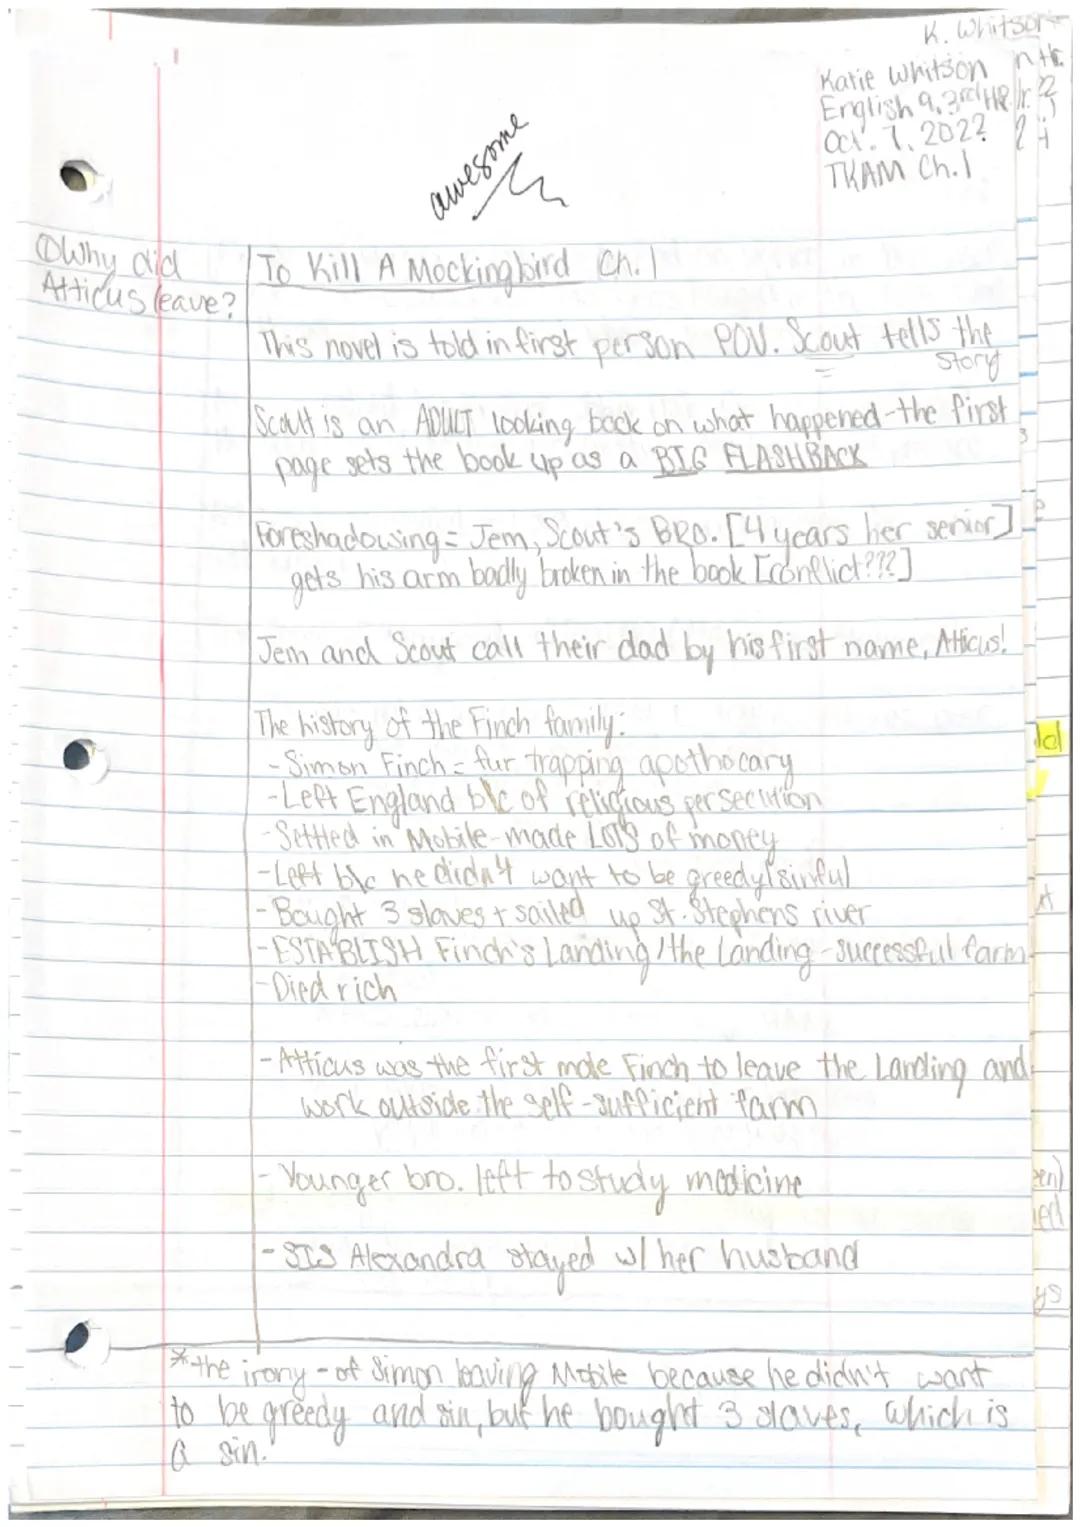 K. Whitson
Katie Whitson
English 9, 3rd HR
Oct. 7, 2022
TKAM Ch. 1
awesome
①Why did
Atticus leave?
To Kill A Mockingbird Ch. 1
This novel is told in first person POV. Scout tells the
story
Scout is an ADULT looking back on what happened - the first
page sets the book up as a BIG FLASHBACK
Foreshadowing = Jem, Scout's BRO. [4 years her senior]
gets his arm badly broken in the book [conflict???]
Jem and Scout call their dad by his first name, Atticus!
The history of the Finch family:
- Simon Finch = fur trapping apothocary
- Left England b/c of religious persecution
- Settled in Mobile - made LOTS of money
- Left b/c he didn't want to be greedy/sinful
- Bought 3 slaves + sailed up St. Stephens river
- ESTABLISH Finch's Landing / the Landing - successful farm
- Died rich
- Atticus was the first male Finch to leave the Landing and
work outside the self-sufficient farm
- Younger bro. left to study medicine
- SIS Alexandra stayed w/ her husband
* the irony - of Simon leaving Mobile because he didn't want
to be greedy and sin, but he bought 3 slaves, which is
a sin.